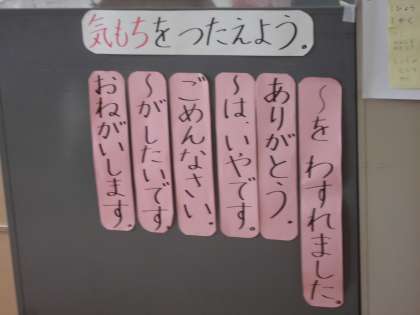 気もちをつたえよう。
～を わすれました。
ありがとう。
～は、いやです。
ごめんなさい。
～がしたいです。
おねがいします。